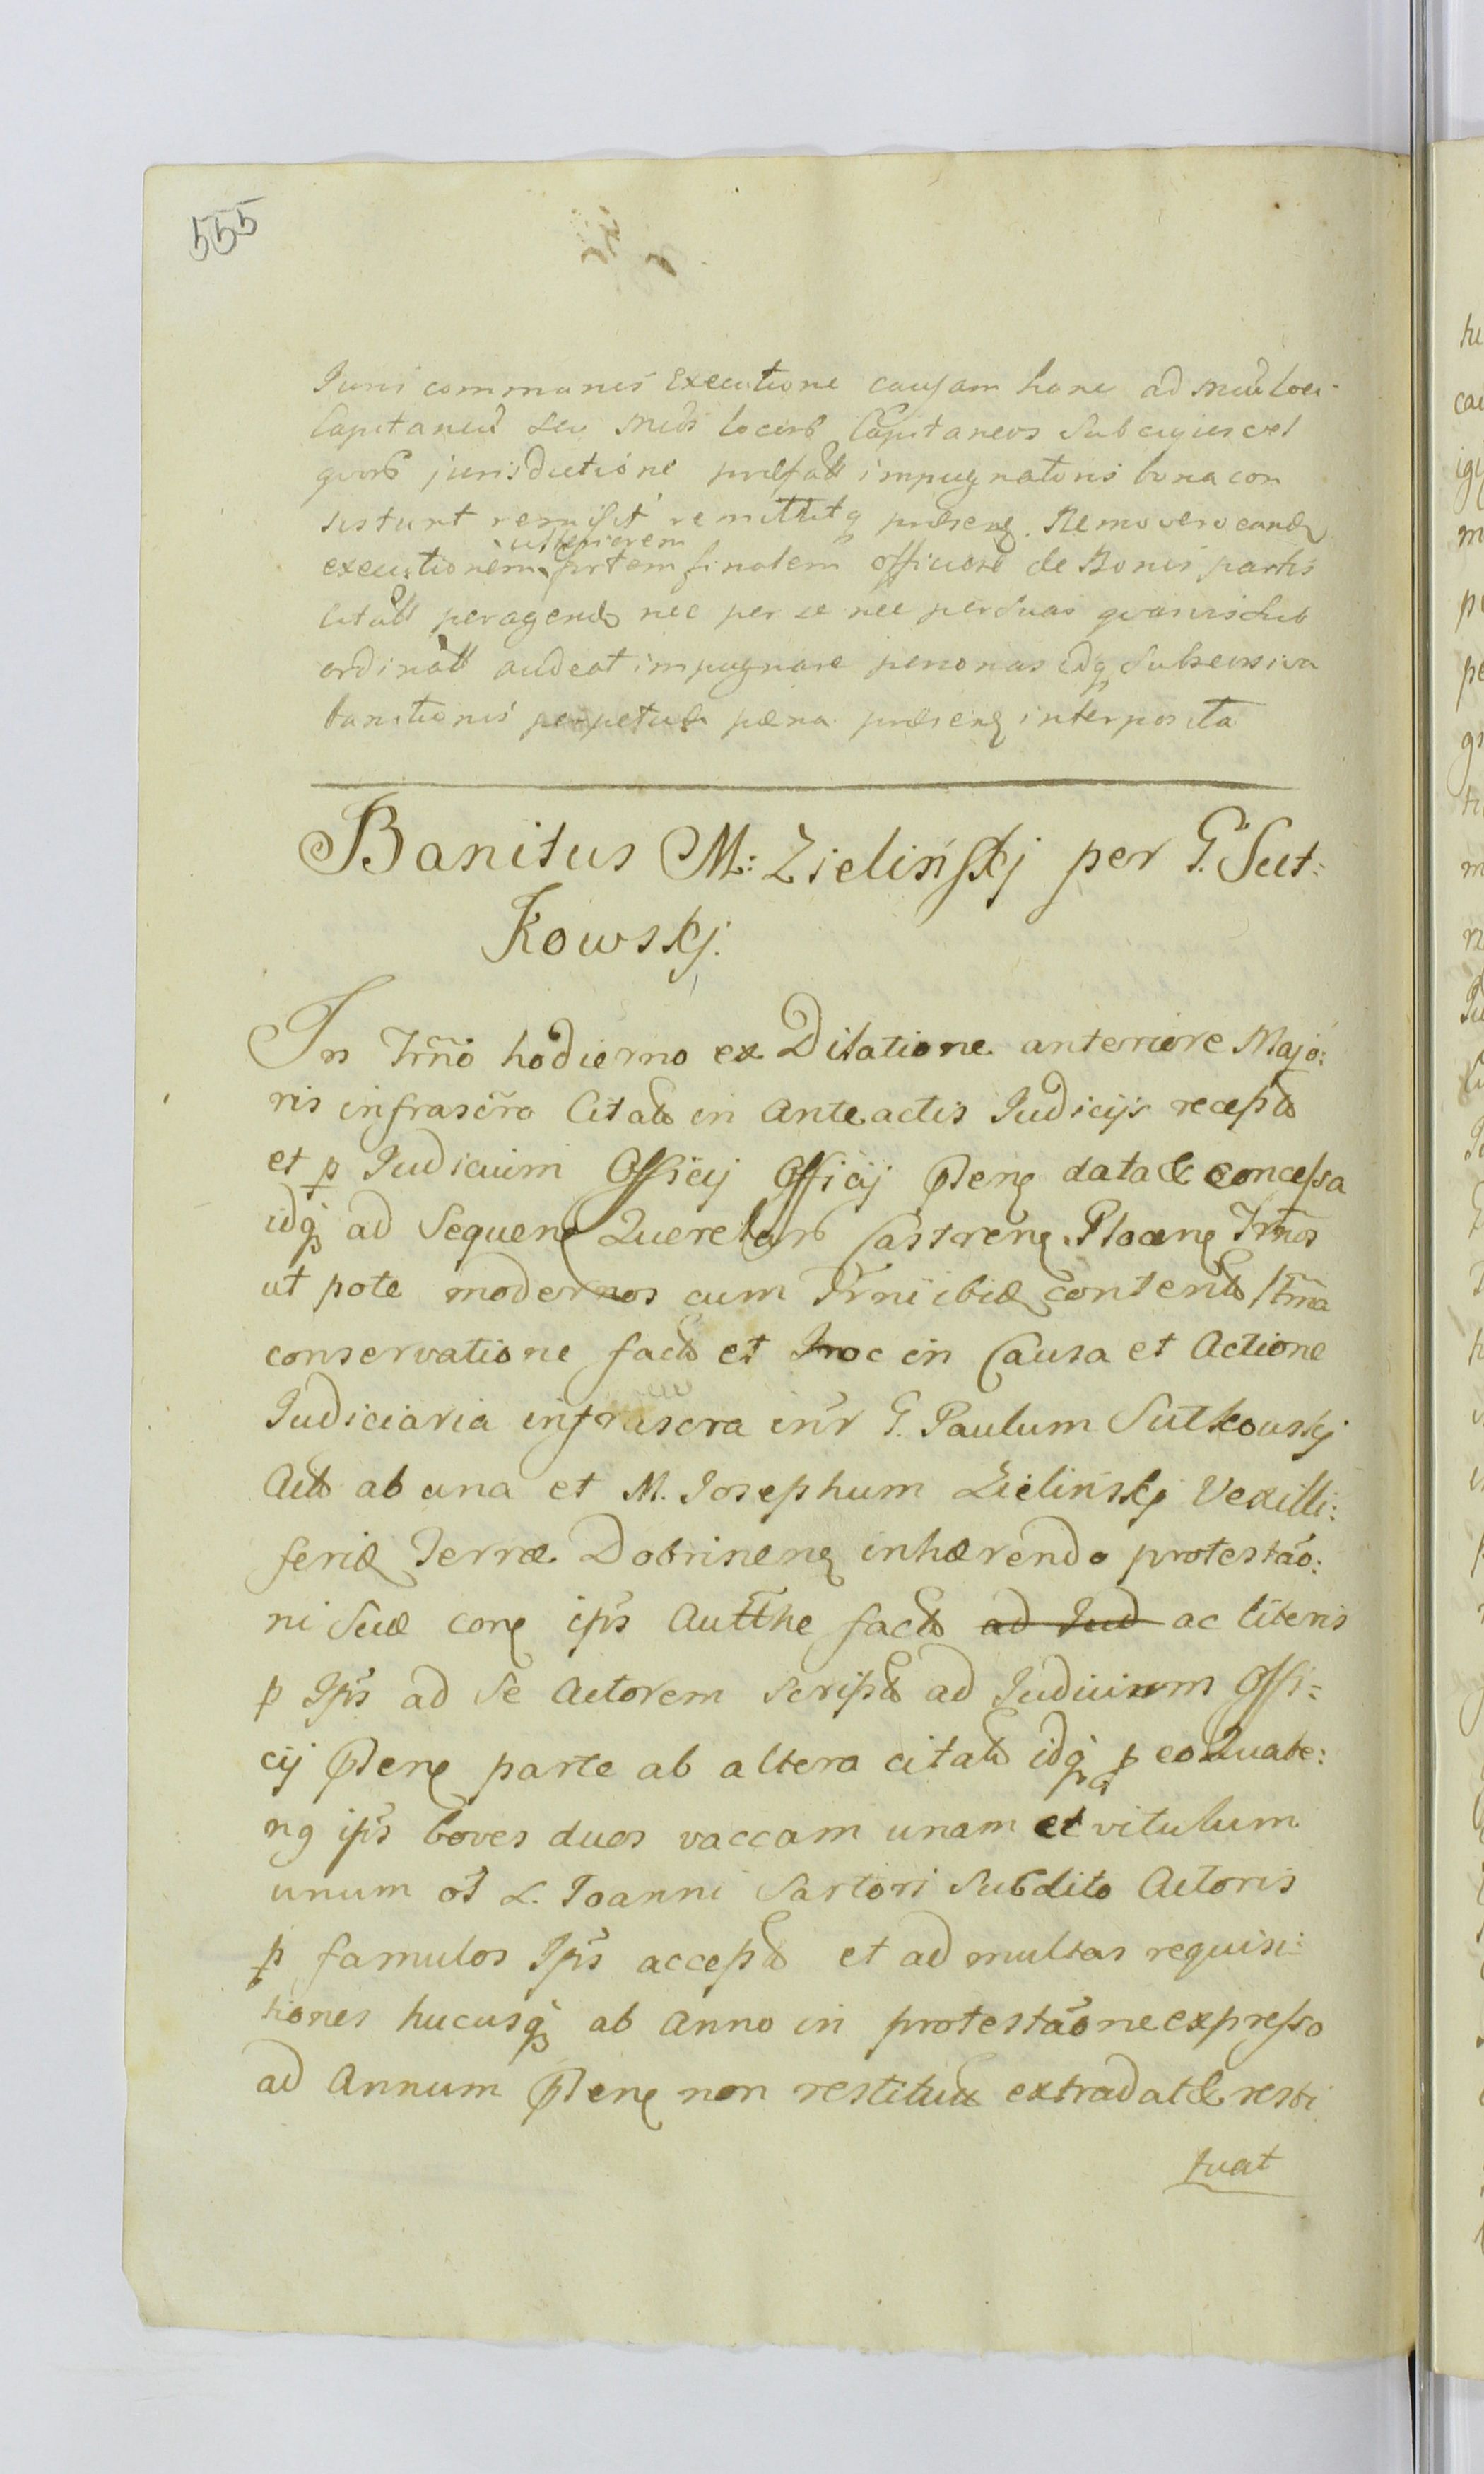 555
Juris communis Executione causam hanc ad
Capitaneū seu locorb Capitaneos sub cujus vel
quorb jurisdictione præfatt impugnatoris bona con
sistunt remisit remittitq præsenę. Nemo vero eandę
ulteriorem
executionem prtem finalem officiose de Bonis partis
citatt peragendę nec per se nec per suas quasvis sub
ordinatt audeat impugnare personas idq sub
banitionis perpetuæ pæna præsenę interposita
Banitus M: Zielińskj per G. Sut=
kowskj.
In Trñō hodierno ex Dilatione anteriore Majo:
ris infrascr̃o Citatæ in Anteactis Judicijs recepta
et p Judicium Officij Officij Pſenę data & concessa
idq ad Sequenę Querelarb Castrenę Plocenę Trños
ut pote modernos cum Trñi ibidę contentæ /trña
conservatione facta et hoc in Causa et Actione
Judiciaria infrascra intr G. Paulum Sutkowskj
Act ab una et M. Josephum Zielinskj Vexilli:
ferū Terræ Dobrinenę inhærendo protestaō:
ni suæ corę ips Autthe factæ ad Jud ac literis
p Ips ad se Actorem scriptis ad Judicium Offi=
cij Pſenę parte ab altera citatę idq p eo Quate:
nq ips boves duos vaccam unam et vitulum
unum L. Joanni Sartori Subdito Actoris
p famulos Ips accepta et ad multas requisi:
tiones hucusq ab Anno in protestaōne expresso
ad Annum Pſenę non restituta extradat & resti
tuat